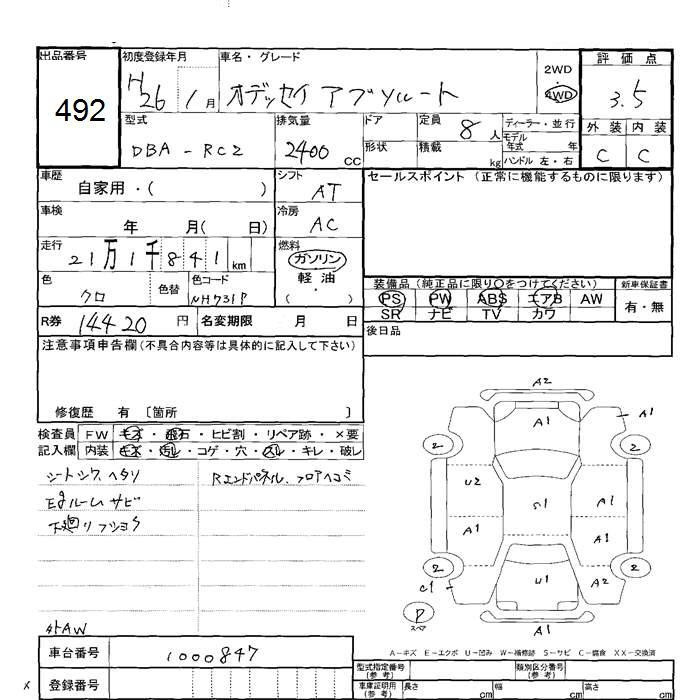 出品番号
492
初度登録年月
H26 1月
車名・グレード
オデッセイ アブソルート
2WD
・
4WD
評価点
3.5
外装 内装
C C
型式
DBA - RC2
排気量
2400 cc
ドア
形状
定員
8人
積載
kg
ディーラー・並行
モデル
年式 年
ハンドル 左・右
車歴
自家用・( )
シフト
AT
セールスポイント (正常に機能するものに限ります)
車検
年 月( 日)
冷房
AC
走行
21万1千841km
燃料
ガソリン
軽油
・
( )
色
クロ
色替
色コード
NH731P
装備品 (純正品に限り○をつけてください)
PS PW ABS エアB AW
SR ナビ TV カワ
新車保証書
有・無
R券 14420円
名変期限 月 日
後日品
注意事項申告欄(不具合内容等は具体的に記入して下さい)
修復歴 有 〔箇所 〕
検査員
記入欄
FW キズ・飛石・ヒビ割・リペア跡・×要
内装 キズ・汚レ・コゲ・穴・スレ・キレ・破レ
シートシワ、ヘタリ
Egルームサビ
下廻リフショク
Rエンドパネル、フロアヘコミ
外AW
車台番号
1000847
登録番号
A2
A1
A1
2
2
U2
S1
A1
A1
A1
2
2
C1
U1
A2
P
スペア
A1
A-キズ E-エクボ U-凹み W-補修跡 S-サビ C-腐食 XX-交換済
型式指定番号
(参考)
類別区分番号
(参考)
車庫証明用
(参考)
長さ cm
幅 cm
高さ cm